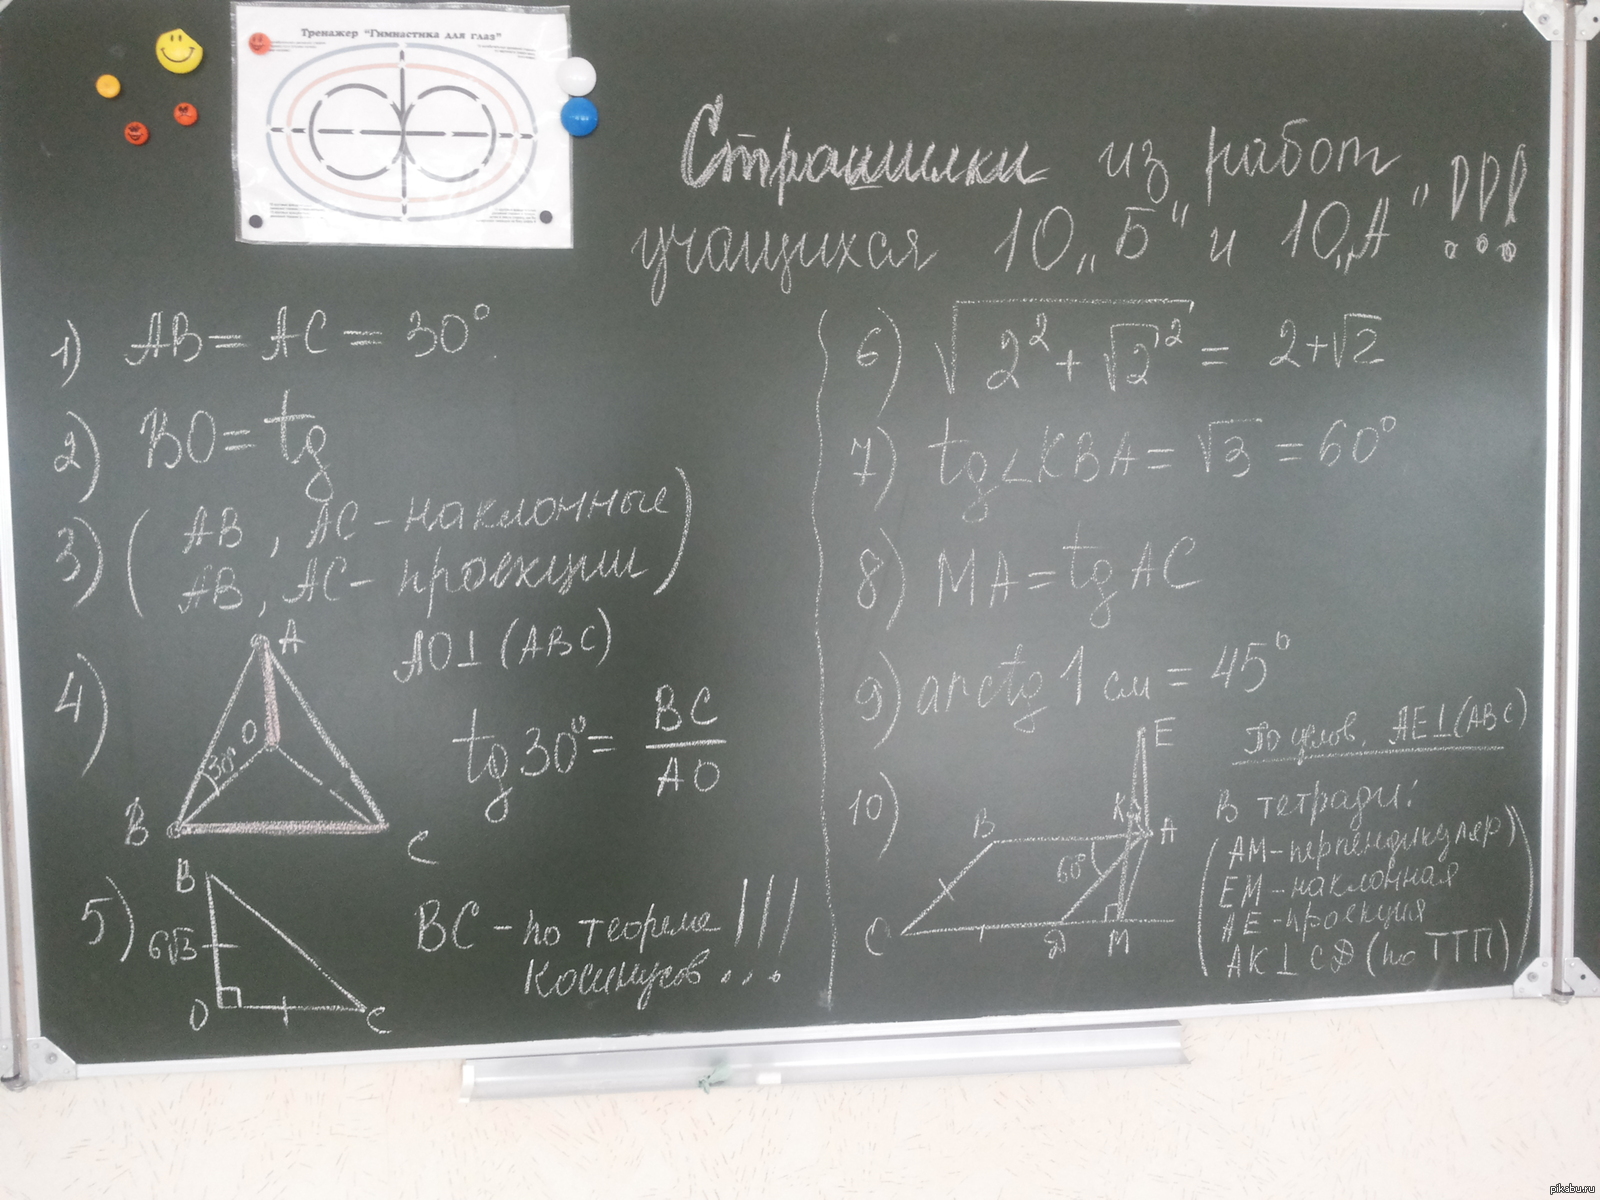 Тренажер "Гимнастика для глаз"
Страшилки из работ
учащихся 10 „Б" и 10 „А" !!!
1) AB = AC = 30°
2) BO = tg
3) (AB, AC - наклонные
AB, AC - проекции)
4) A
AO⊥(ABC)
O
30°
B
C
tg30° = BC/AO
5) B
6√3
O
C
BC - по теореме
косинусов...!!!
6) √(2² + √2²) = 2+√2
7) tg∠KBA = √3 = 60°
8) MA = tg AC
9) arctg 1 см = 45°
10) E
K
A
B
60°
C
Д
M
По услов. AE⊥(ABC)
В тетради:
(AM-перпендикуляр
EM-наклонная
AE-проекция
AK⊥CД (по ТТП))
pikabu.ru